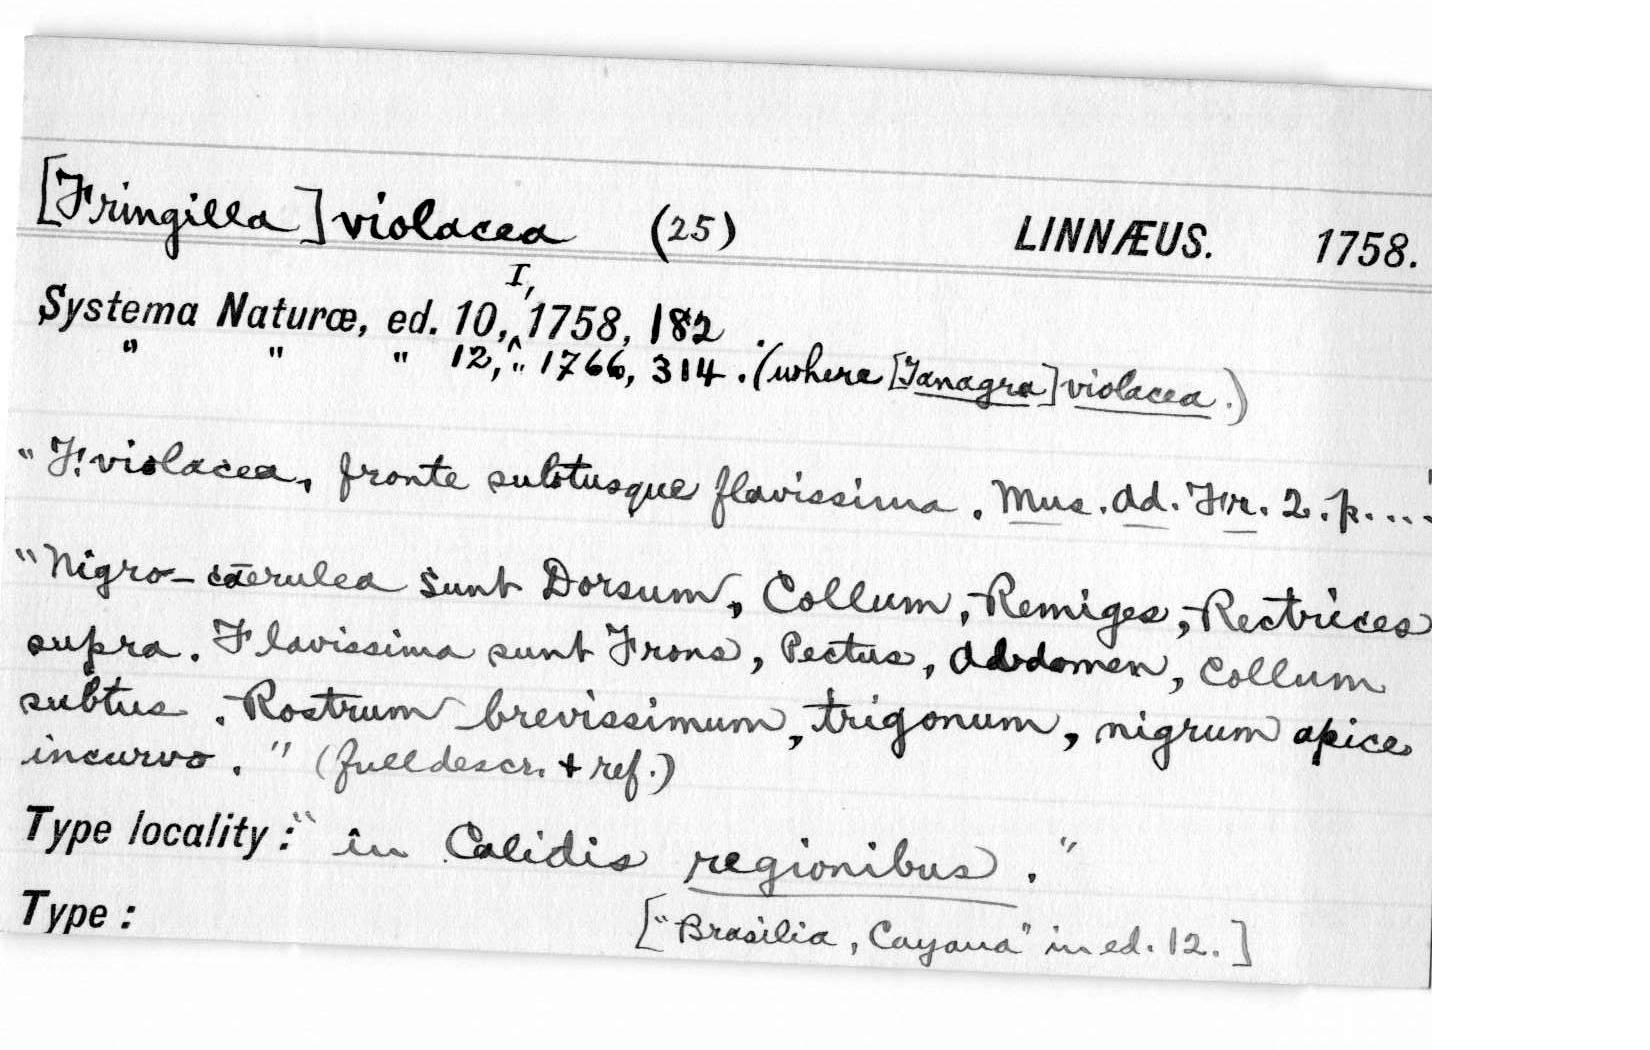 [Fringilla] violacea (25) LINNÆUS. 1758.
Systema Naturæ, ed. 10, I, 1758, 182 .
" " " 12, " 1766, 314. (where [Tanagra] violacea.)
"F. violacea, fronte subtusque flavissima. Mus. Ad. Fr. 2. p. ....
"Nigro-cærulea sunt Dorsum, Collum, Remiges, Rectrices
supra. Flavissima sunt Frons, Pectus, Abdomen, Collum
subtus. Rostrum brevissimum, trigonum, nigrum apice
incurvo." (full descr. + ref.)
Type locality: "in Calidis regionibus."
Type: ["Brasilia, Cayana" in ed. 12.]